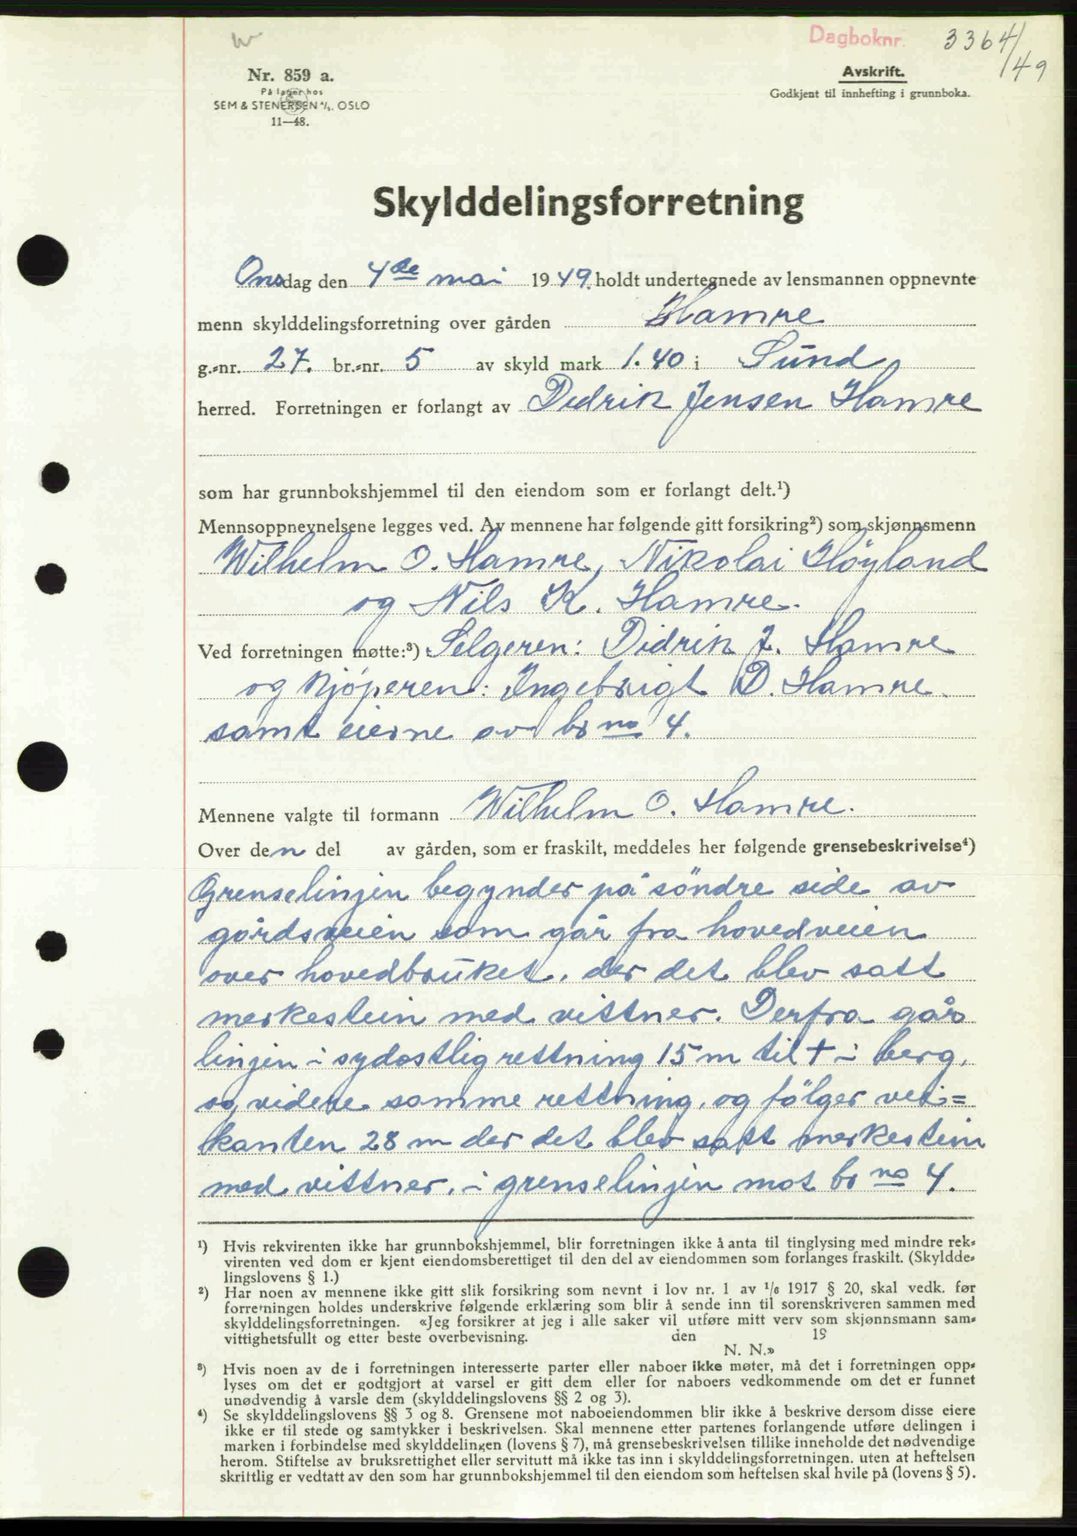 Dagboknr. 3364/49
Nr. 859 a.
På lager hos
SEM & STENERSEN A/S. OSLO
11—48.
Avskrift.
Godkjent til innhefting i grunnboka.
Skylddelingsforretning
Onsdag den 4de mai 1949. holdt undertegnede av lensmannen oppnevnte
menn skylddelingsforretning over gården Hamre
g.-nr. 27. br.-nr. 5 av skyld mark 1.40 i Sund
herred. Forretningen er forlangt av Didrik Jensen Hamre
som har grunnbokshjemmel til den eiendom som er forlangt delt.¹)
Mennsoppnevnelsene legges ved. Av mennene har følgende gitt forsikring²) som skjønnsmenn
Wilhelm O. Hamre, Nikolai Høyland
og Nils K. Hamre.
Ved forretningen møtte:³) Selgeren: Didrik J. Hamre
og kjöperen: Ingebrigt D. Hamre.
samt eierne av br no 4.
Mennene valgte til formann Wilhelm O. Hamre.
Over den del av gården, som er fraskilt, meddeles her følgende grensebeskrivelse⁴)
Grenselinjen begynder på söndre side av
gårdsveien som går fra hovedveien
over hovedbruket, der det blev satt
merkestein med vittner. Derfra går
linjen i sydøstlig rettning 15 m til + i berg,
so videre samme rettning, og fölger vei=
kanten 28 m der det blev satt merkestein
med vittner, i grenselinjen mot br no 4.
¹) Hvis rekvirenten ikke har grunnbokshjemmel, blir forretningen ikke å anta til tinglysing med mindre rek-
virenten ved dom er kjent eiendomsberettiget til den del av eiendommen som forlanges fraskilt. (Skyldde-
lingslovens § 1.)
²) Har noen av mennene ikke gitt slik forsikring som nevnt i lov nr. 1 av 1/6 1917 § 20, skal vedk. før
forretningen holdes underskrive følgende erklæring som blir å sende inn til sorenskriveren sammen med
skylddelingsforretningen. «Jeg forsikrer at jeg i alle saker vil utføre mitt verv som skjønnsmann sam-
vittighetsfullt og etter beste overbevisning. den 19
N. N.»
³) Hvis noen av de i forretningen interesserte parter eller naboer ikke møter, må det i forretningen opp-
lyses om det er godtgjort at varsel er gitt dem eller for naboers vedkommende om det er funnet
unødvendig å varsle dem (skylddelingslovens §§ 2 og 3).
⁴) Se skylddelingslovens §§ 3 og 8. Grensene mot naboeiendommen blir ikke å beskrive dersom disse eiere
ikke er til stede og samtykker i beskrivelsen. Skal mennene etter partenes forlangende utføre delingen i
marken i forbindelse med skylddelingen (lovens § 7), må grensebeskrivelsen tillike inneholde det nødvendige
herom. Stiftelse av bruksrettighet eller servitutt må ikke tas inn i skylddelingsforretningen. uten at heftelsen
skriftlig er vedtatt av den som har grunnbokshjemmel til den eiendom som heftelsen skal hvile på (lovens § 5).